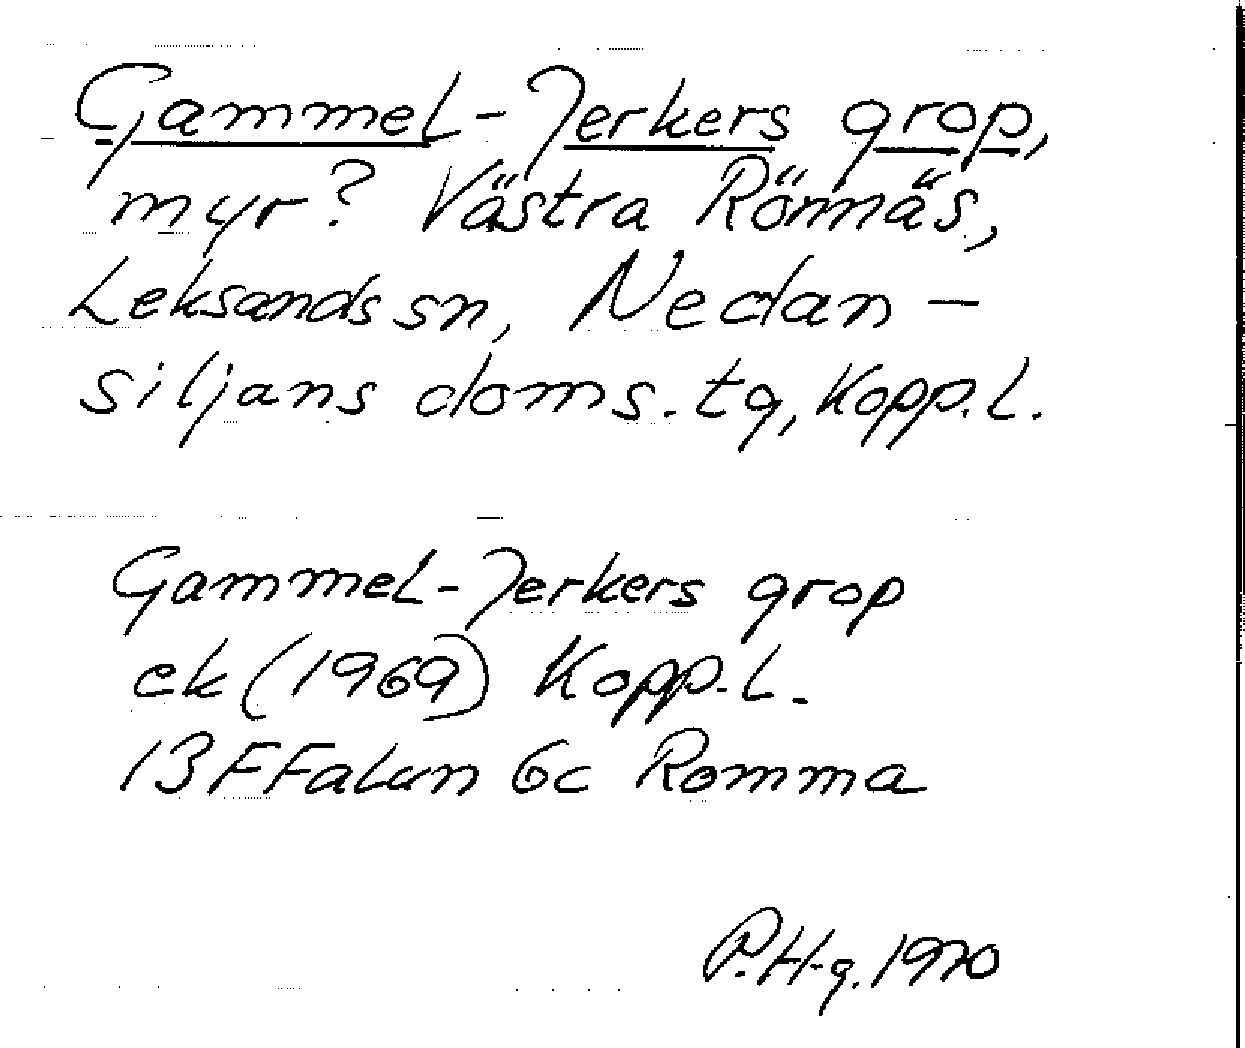 Gammel-Jerkers grop,
myr? Västra Rönnäs,
Leksands sn, Nedan-
siljans doms. tg, Kopp. l.
Gammel-Jerkers grop
ek (1969) Kopp. l.
13F Falun 6c Romma
P. H-g. 1970